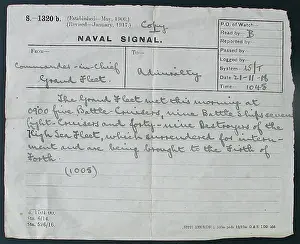 S. 1320 b.
(Established—May, 1901)
(Revised—January, 1917)
Copy
NAVAL SIGNAL.
P.O. of Watch—
Read by— B
Reported by—
Passed by—
Logged by—
System— W/T
Date— 21-11-18
Time— 1045
From—
To—
Commander-in-Chief
Grand Fleet.
Admiralty
The Grand Fleet met this morning at
0900 five Battle-Cruisers, nine Battle Ships seven
Light-Cruisers and forty-nine Destroyers of the
High Sea Fleet, which surrendered for intern-
ment and are being brought to the Firth of
Forth.
(1005)